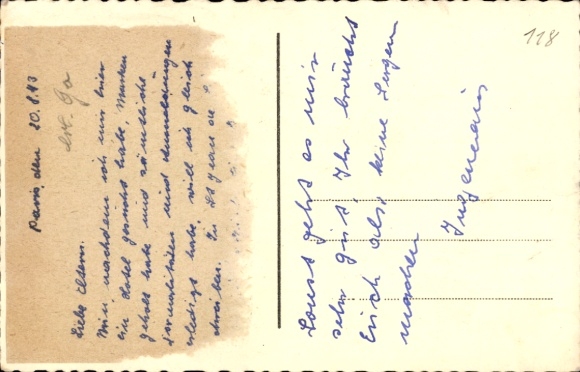 118
Paris, den 20.8.43
Liebe Eltern.
Nun nachdem ich mir hier
ein Hotel gesucht habe, Marken
geholt habe und sämtliche
Formalitäten und Anmeldungen
erledigt habe, will ich gleich
schreiben. Die
Sonst geht es mir
sehr gut, Ihr braucht
Euch also keine Sorgen
machen